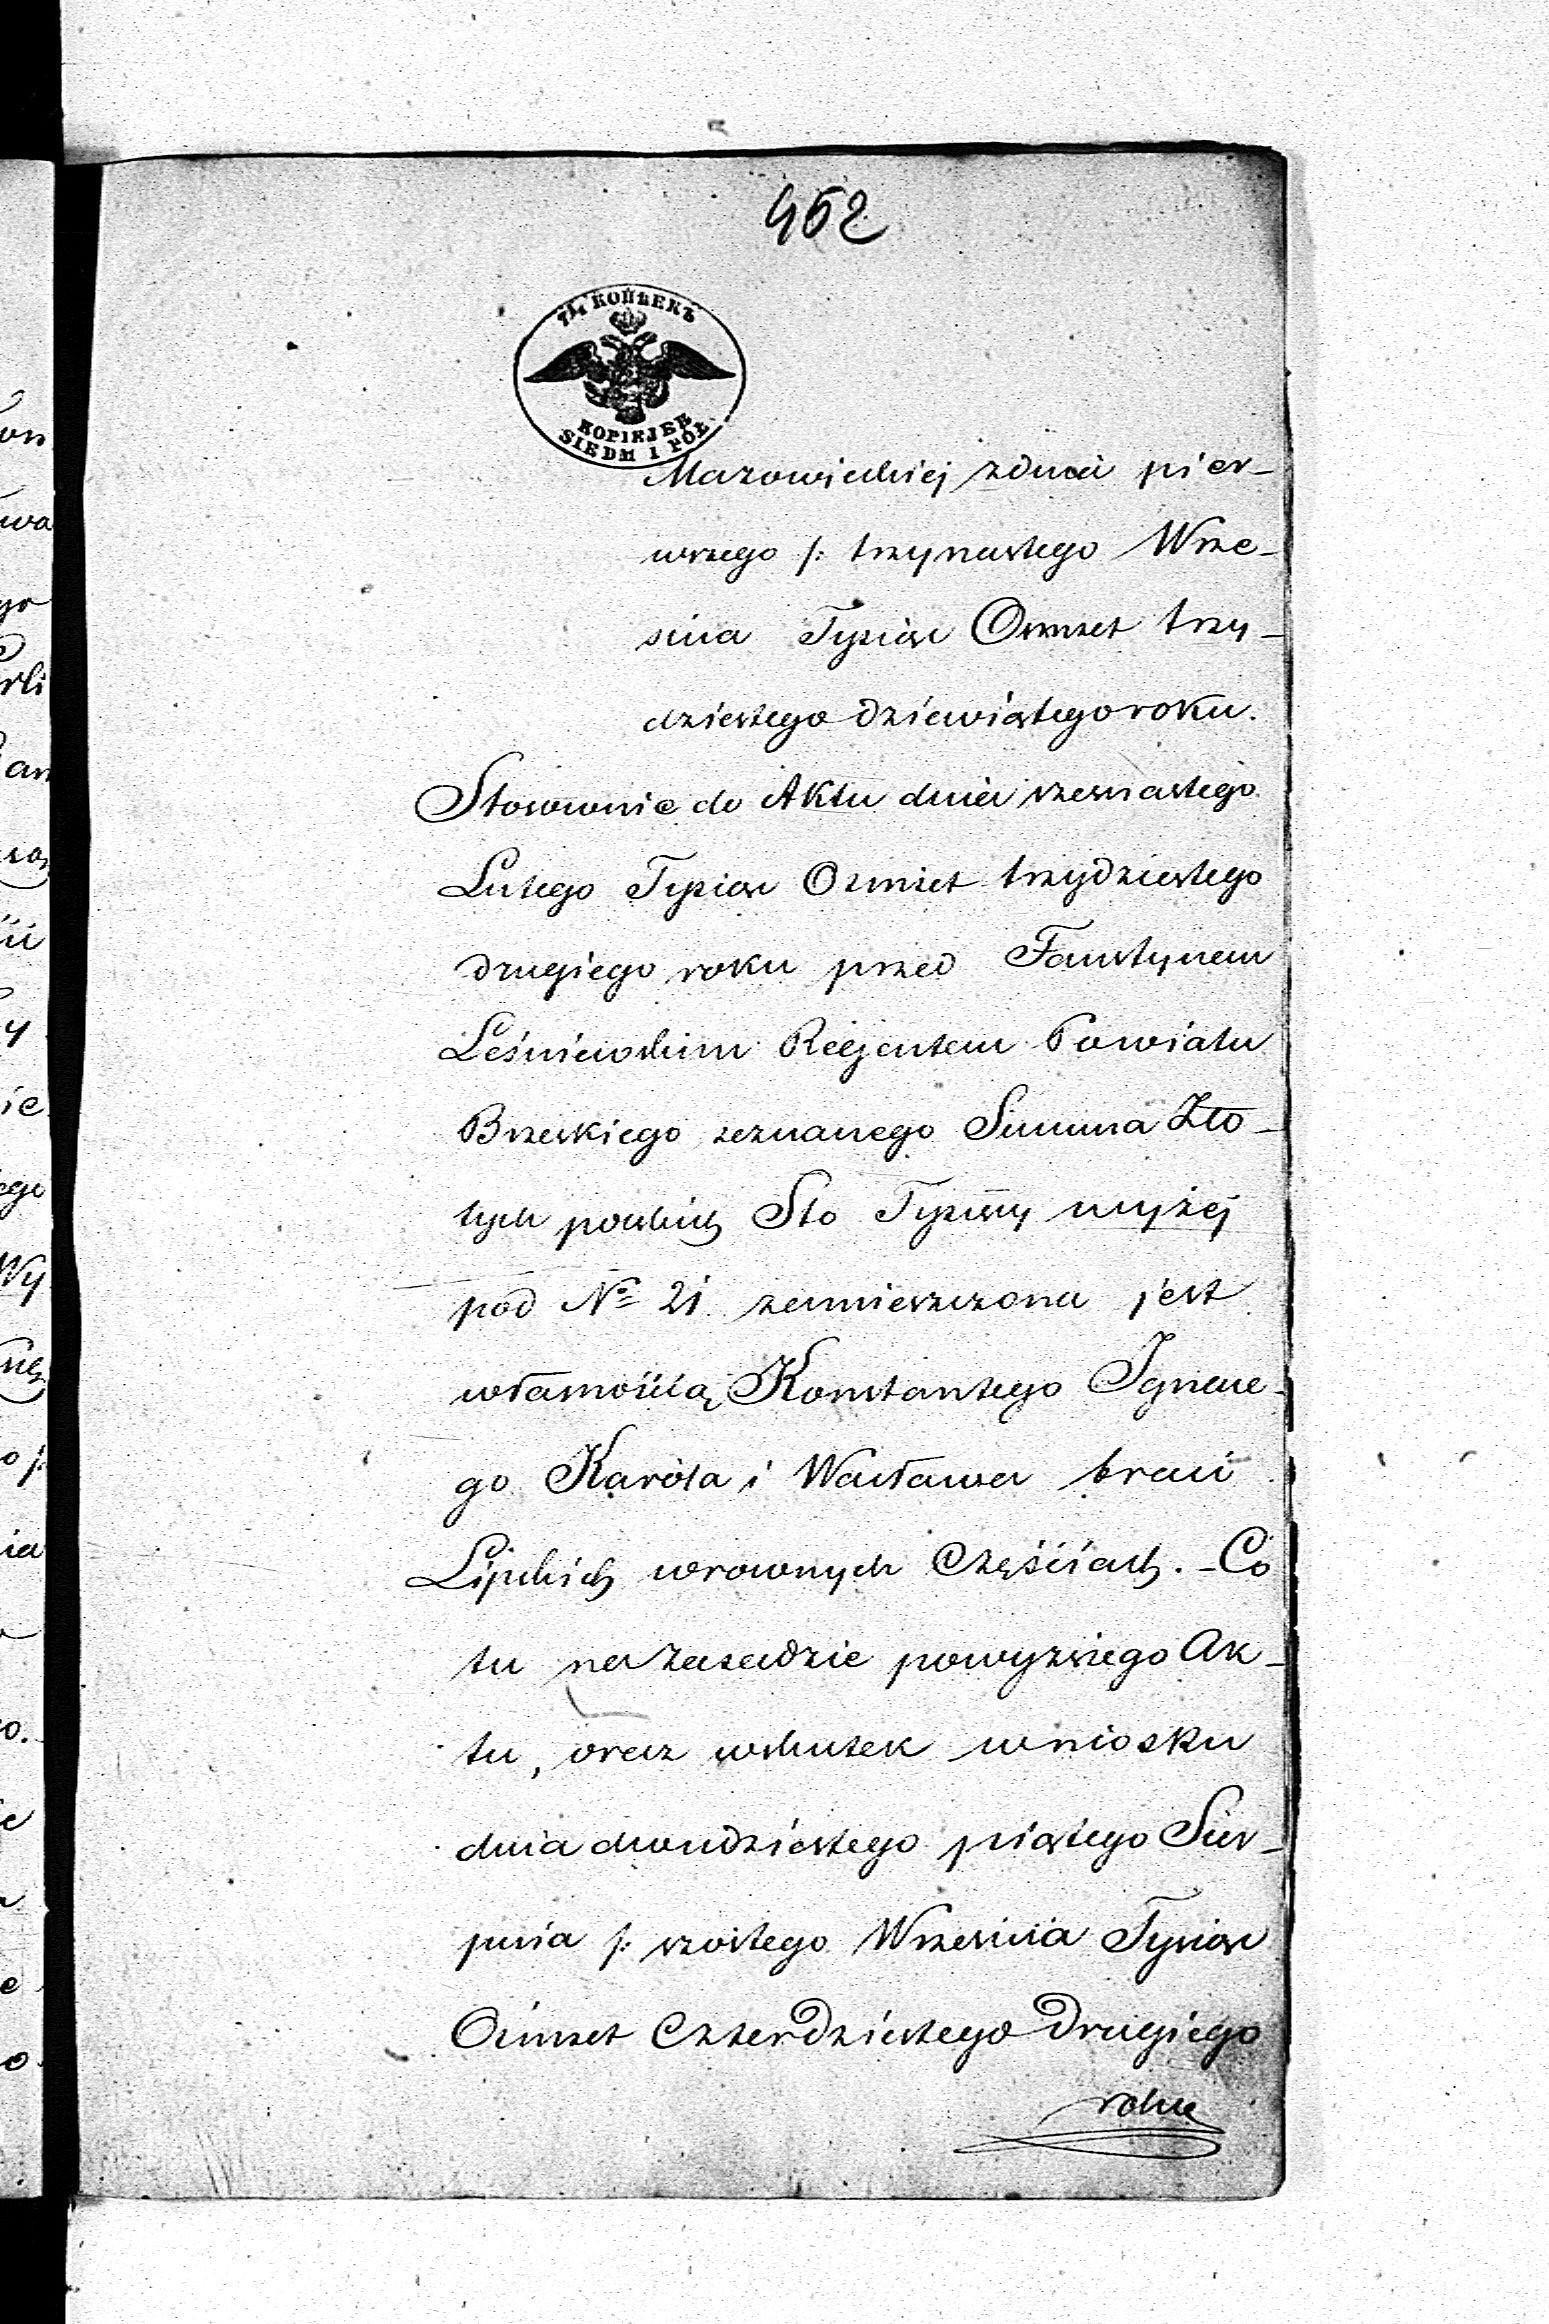 452
7½ КОПѢЕКЪ
KOPIEJEK
SIEDM I PÓŁ
Mazowieckiej zdnia pier-
wszego /: trzynastego Wrze-
śnia Tysiąc Osmset trzy-
dziestego dziewiątego roku.
Stosownie do Aktu dnia szesnastego
Lutego Tysiąc Osmset trzydziestego
drugiego roku przed Faustynem
Leśniewskim Rejentem Powiatu
Brzeskiego zeznanego Summa Zło-
tych polskich Sto Tysięcy wyżej
pod No 21 zamieszczona jest
własnością Konstantego Ignace-
go Karóla i Wacława braci
Lipskich wrownych Częściach. - Co
tu na zasadzie powyzszego Ak-
tu, oraz wskutek wniosku
dnia dwudziestego piątego Sier-
pnia /: szóstego Września Tysiąc
Ośmset Czterdziestego Drugiego
roku